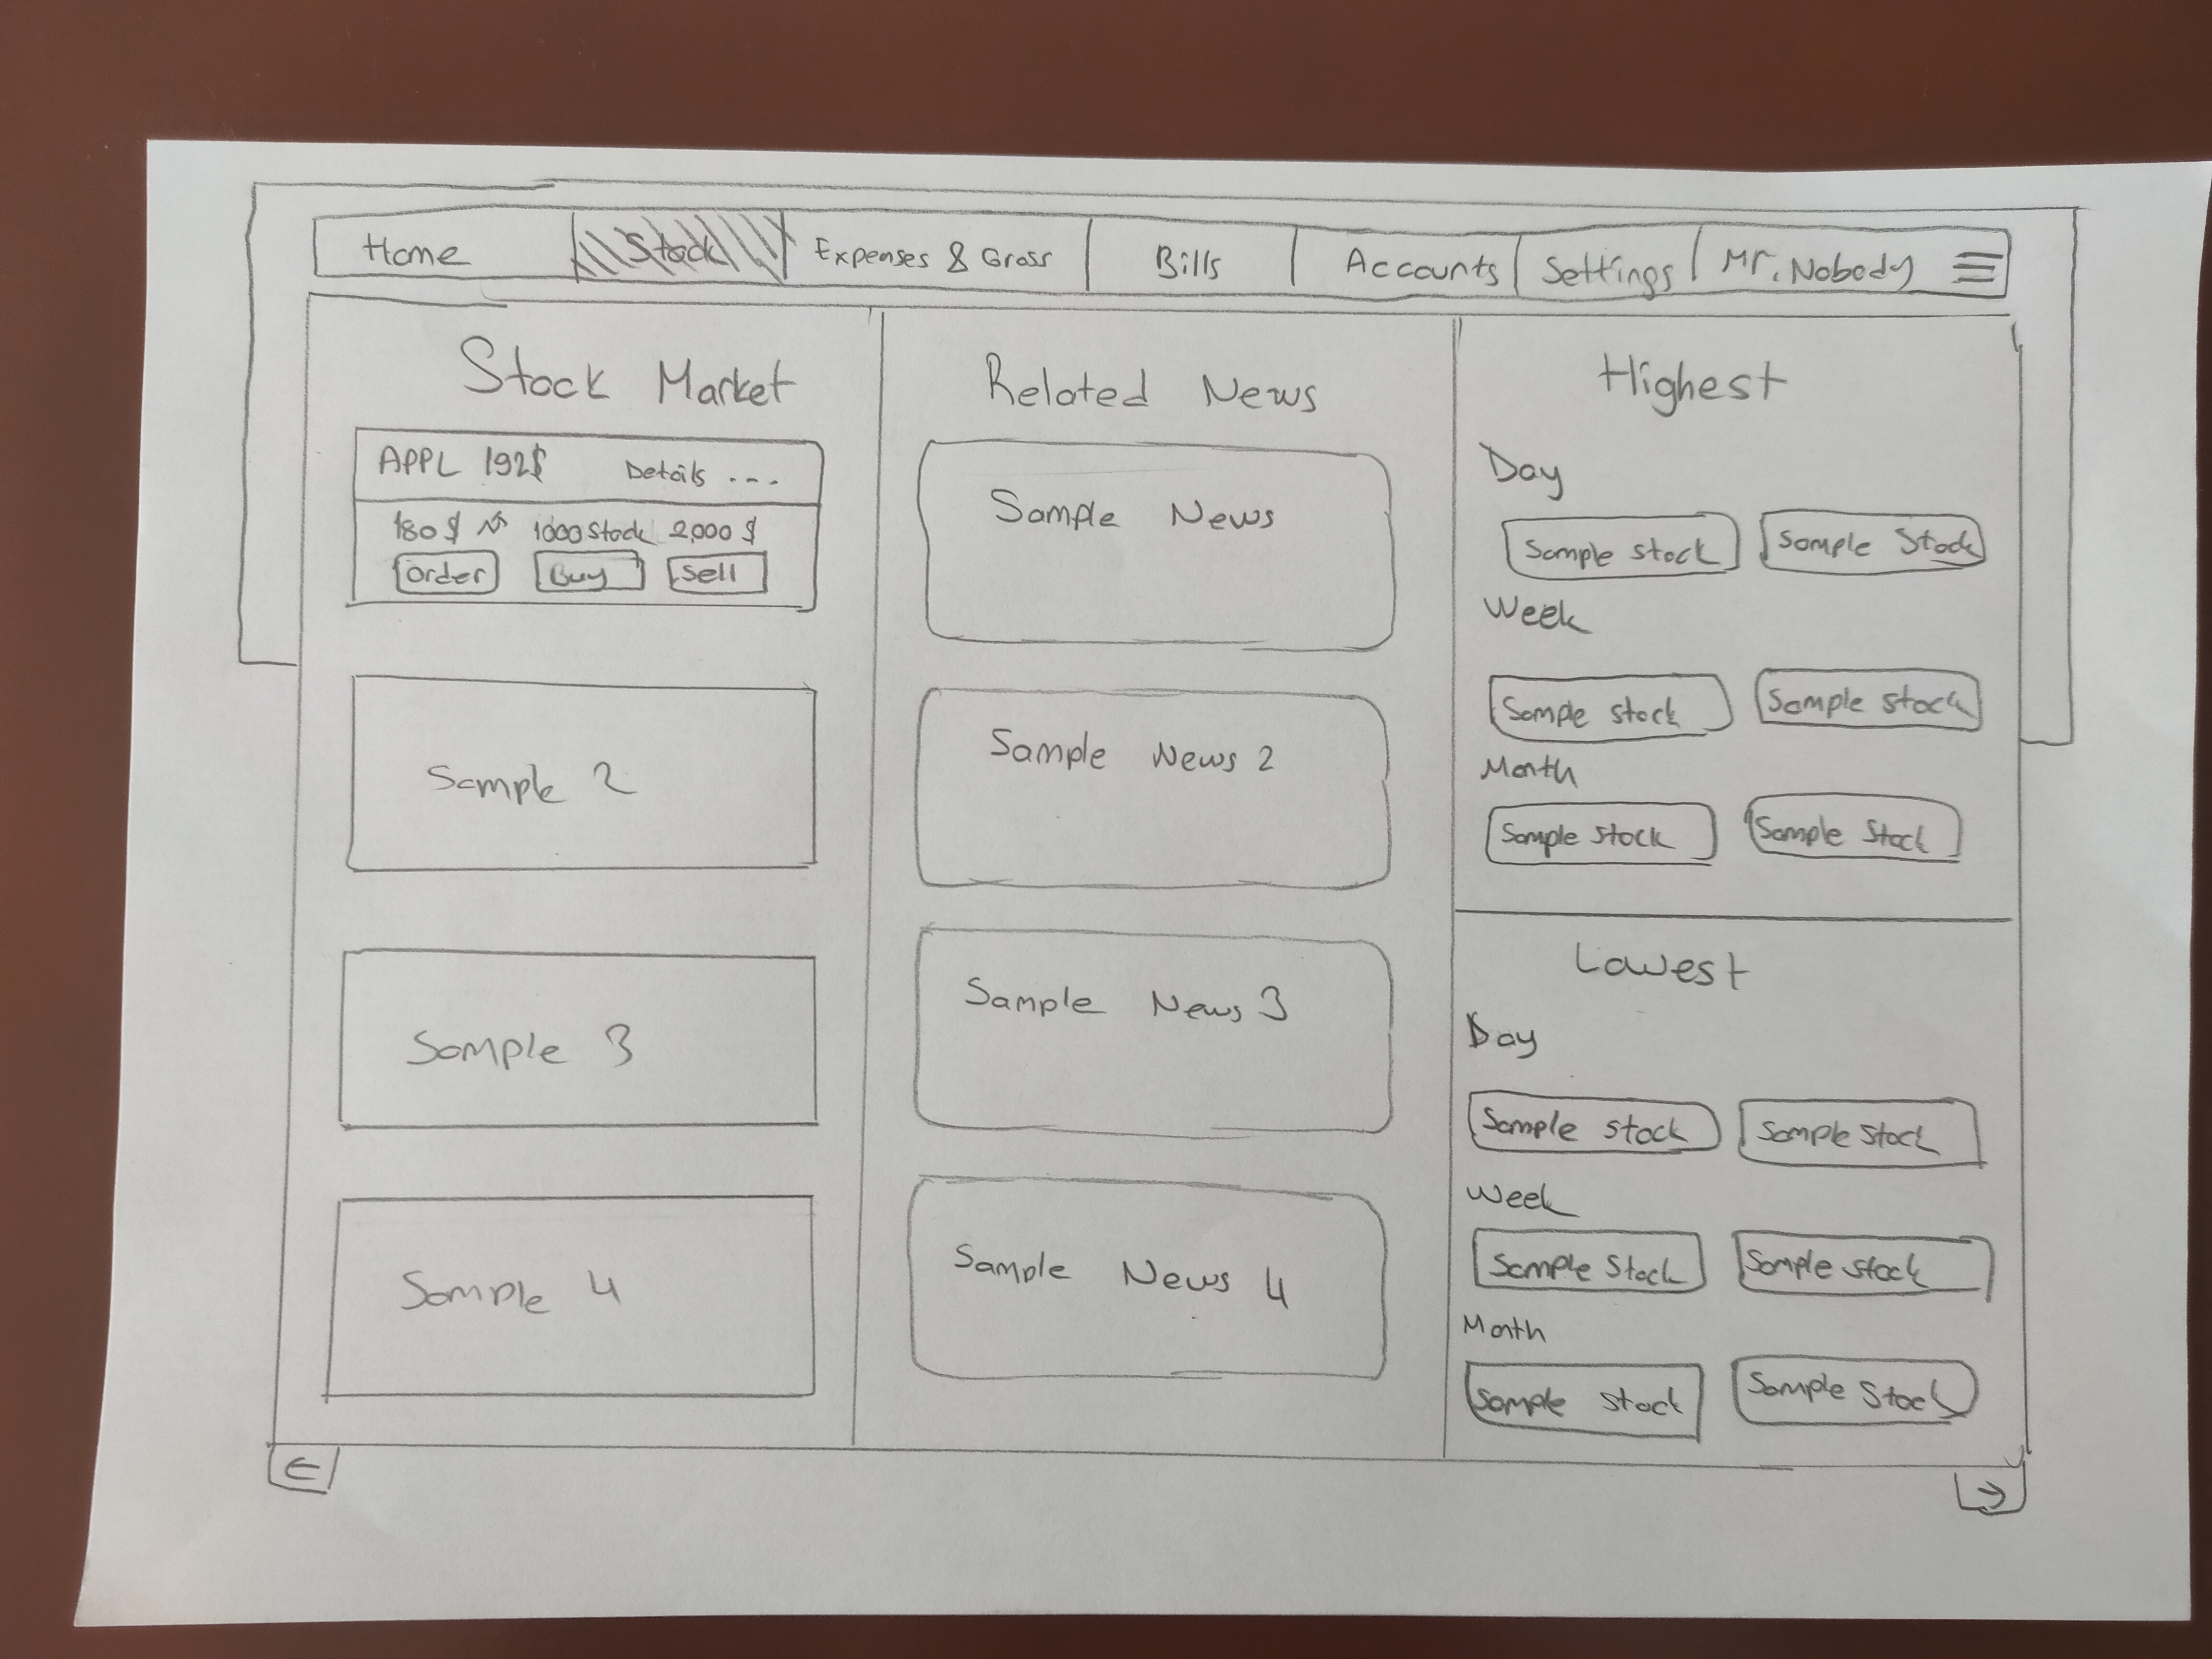 Home Stock Expenses & Gross Bills Accounts Settings Mr. Nobody
Stock Market
APPL 192$ Details ...
180$ 1000 stock 2,000 $
Order Buy Sell
Sample 2
Sample 3
Sample 4
Related News
Sample News
Sample News 2
Sample News 3
Sample News 4
Highest
Day
Sample stock Sample Stock
Week
Sample stock Sample stock
Month
Sample stock Sample Stock
Lowest
Day
Sample stock Sample stock
Week
Sample Stock Sample stock
Month
Sample stock Sample Stock